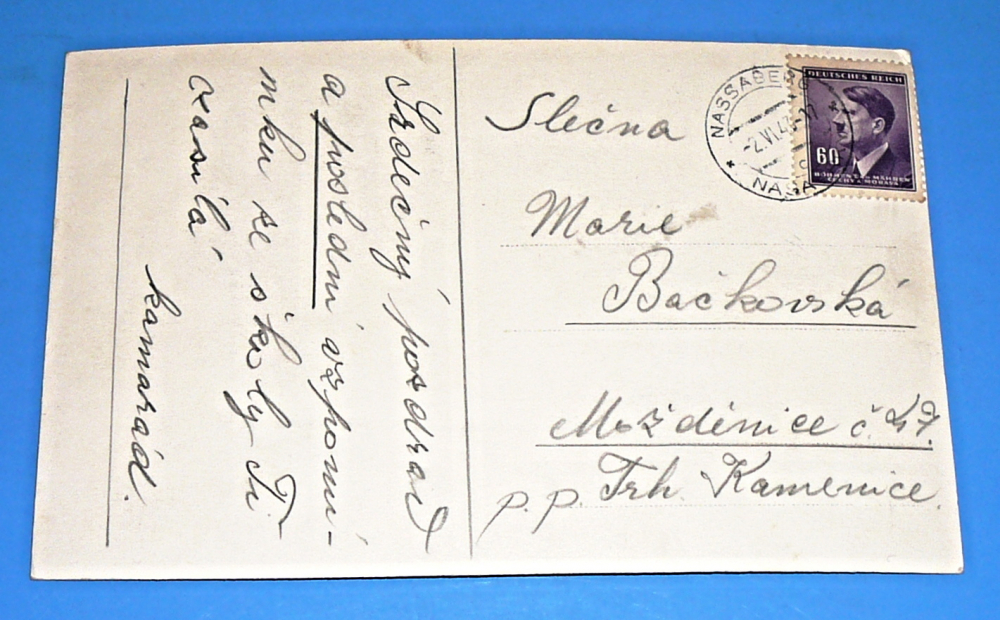 Srdečný pozdrav
a poslední vzpomí-
nku ze školy Ti
zasílá
kamarád.
Slečna
Marie
Bačkovská
Možděnice č. 47.
p. p. Trh. Kamenice.
NASSABERG
-2.VI.4
NASA
DEUTSCHES REICH
60
BÖHMEN UND MÄHREN
ČECHY A MORAVA